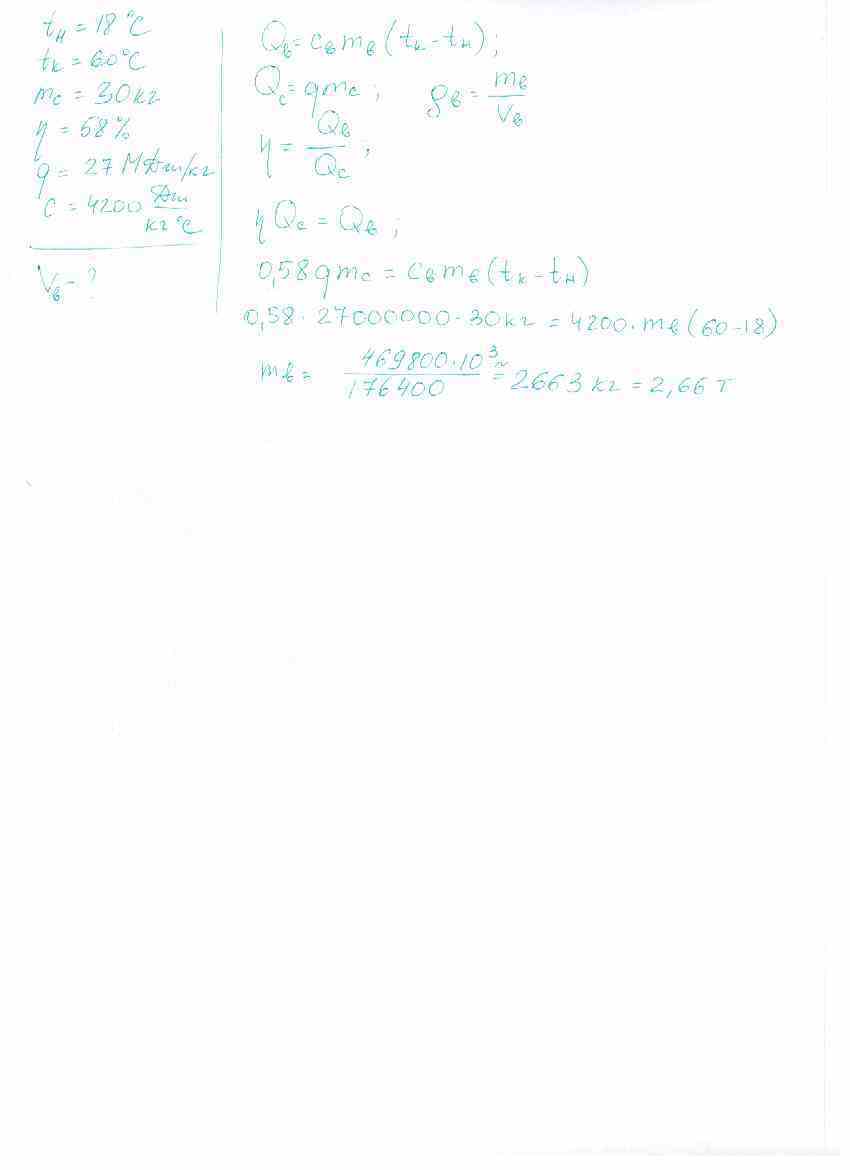 tн = 18 °C
tк = 60°C
mc = 30 кг
η = 58 %
q = 27 МДж/кг
c = 4200 Дж/кг °C
Vв - ?
Qв = cв mв (tк - tн) ;
Qc = qmc ; ρв = mв/Vв
η = Qв/Qc ;
η Qc = Qв ;
0,58 qmc = cв mв (tк - tн)
0,58 · 27000000 · 30 кг = 4200 · mв (60 - 18)
mв = 469800·10³/176400 ≃ 2663 кг = 2,66 т